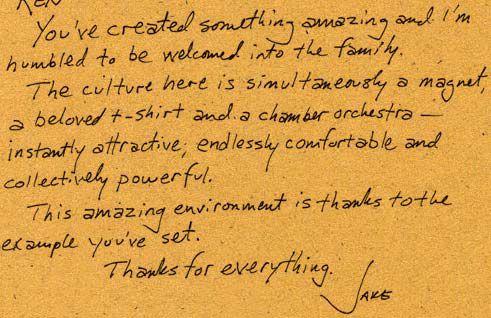 KEN
You've created something amazing and I'm
humbled to be welcomed into the family.
The culture here is simultaneously a magnet,
a beloved t-shirt and a chamber orchestra —
instantly attractive, endlessly comfortable and
collectively powerful.
This amazing environment is thanks to the
example you've set.
Thanks for everything.
JAKE